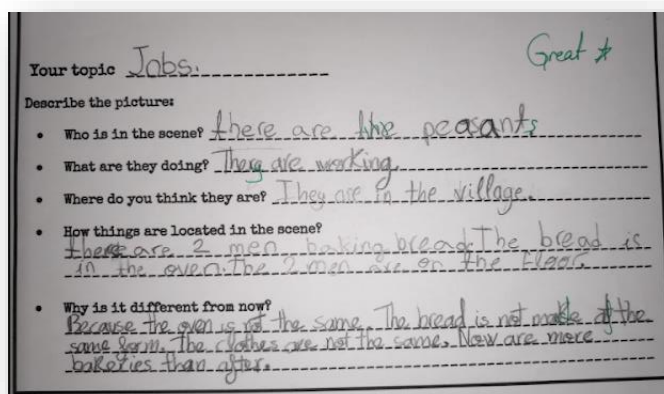 Great *
Your topic Jobs.
Describe the picture:
• Who is in the scene? there are peasants
• What are they doing? They are working.
• Where do you think they are? They are in the village.
• How things are located in the scene?
there are 2 men baking bread. The bread is
in the oven. The 2 men are on the floor.
• Why is it different from now?
Because the oven is not the same. The bread is not made of the
same form. The clothes are not the same. Now are more
bakeries than after.